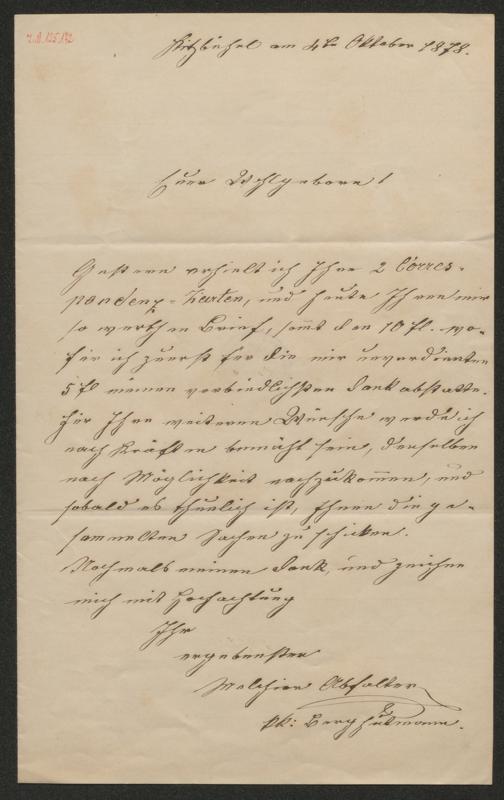 I.N. 125.142
Kitzbühel am 4ten Oktober 1878.
Euer Wohlgeboren!
Gestern erhielt ich Ihre 2 Corres-
pondenz-Karten, und heute Ihren mir
so werthen Brief, sammt den 10 fl. wo-
für ich zuerst für die mir unverdienten
5 fl meinen verbindlichsten Dank abstatte.
Für Ihre weiteren Wünsche werde ich
nach Kräften bemüht sein, denselben
nach Möglichkeit nachzukommen, und
sobald es thunlich ist, Ihnen die ge-
sammelten Sachen zu schicken.
Nochmals meinen Dank, und zeichne
mich mit Hochachtung
Ihr
ergebenster
Melchior Abfalter
kk: Berghutmann.